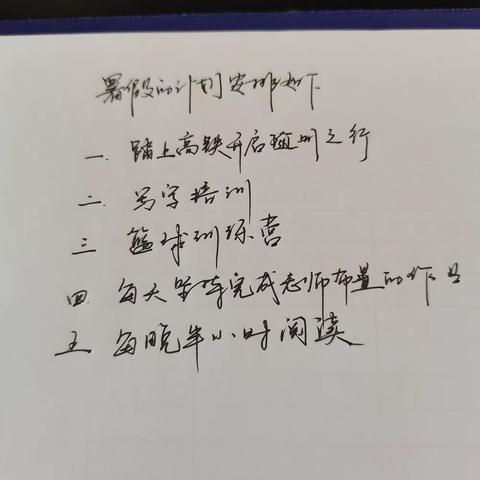 暑假的计划安排如下
一. 踏上高铁开启郑州之行
二. 写字培训
三 篮球训练营
四. 每天坚持完成老师布置的作业
五 每晚半小时阅读